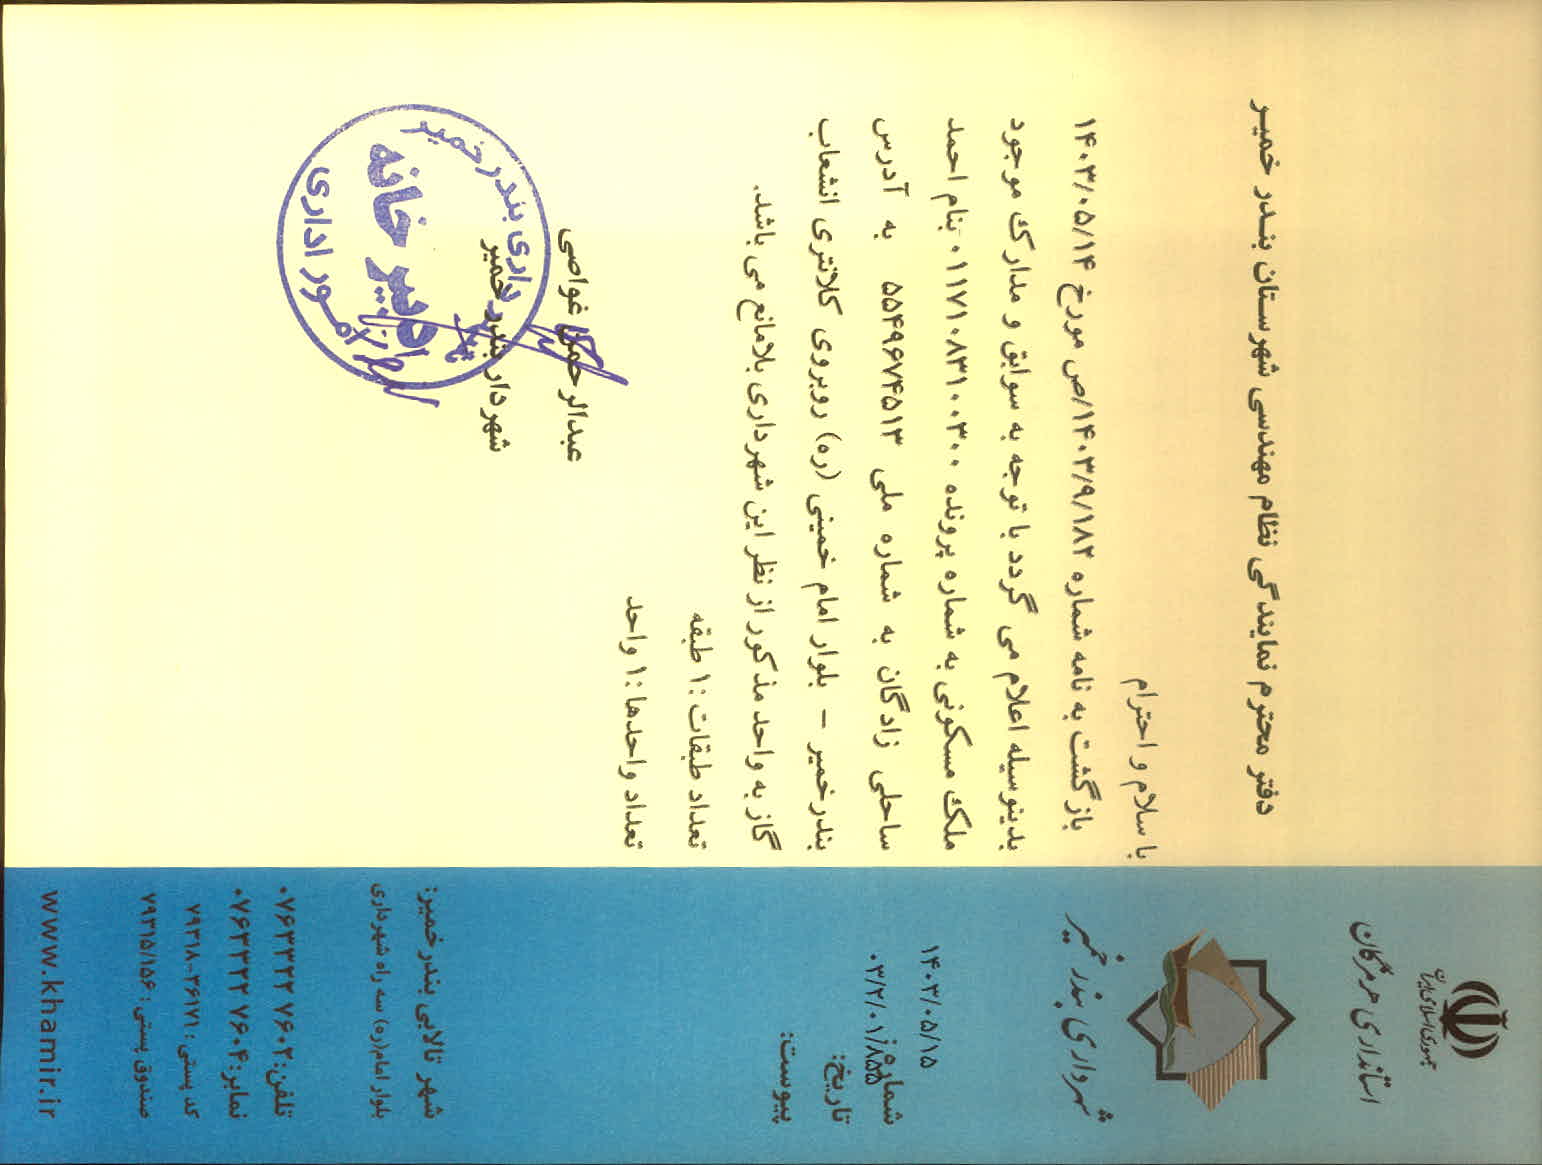 جمهوری اسلامی ایران
استانداری هرمزگان
شهرداری بندر خمیر
۱۴۰۳/۰۵/۱۵
شماره:
۰۳/۲/۰۱/۸۵۵
تاریخ:
پیوست:
شهر تالابی بندر خمیر:
بلوار امام(ره) سه راه شهرداری
تلفن: ۰۷۶۳۳۲۲۷۶۰۲
نمابر: ۰۷۶۳۳۲۲۷۶۰۴
کد پستی: ۳۶۱۷۱-۷۹۳۱۸
صندوق پستی: ۷۹۳۱۵/۱۵۶
www.khamir.ir
دفتر محترم نمایندگی نظام مهندسی شهرستان بندر خمیر
با سلام و احترام
بازگشت به نامه شماره ۱۴۰۳/۹/۱۸۲/ص مورخ ۱۴۰۳/۰۵/۱۴
بدینوسیله اعلام می گردد با توجه به سوابق و مدارک موجود
ملک مسکونی به شماره پرونده ۰۱۱۷۱۰۸۳۱۰۰۳۰۰ بنام احمد
ساحلی زادگان به شماره ملی ۵۵۴۹۶۷۴۵۱۳ به آدرس
بندرخمیر – بلوار امام خمینی (ره) روبروی کلانتری انشعاب
گاز به واحد مذکور از نظر این شهرداری بلامانع می باشد.
تعداد طبقات :۱ طبقه
تعداد واحدها :۱ واحد
عبدالرحمن غواصی
شهردار بندر خمیر
شهرداری بندر خمیر
دبیرخانه
امور اداری